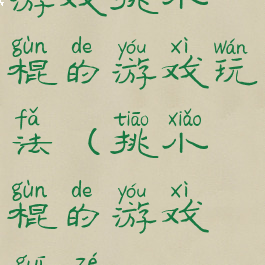 游戏挑小
gùn de yóu xì wán
棍的游戏玩
fǎ tiāo xiǎo
法（挑小
gùn de yóu xì
棍的游戏
guī zé